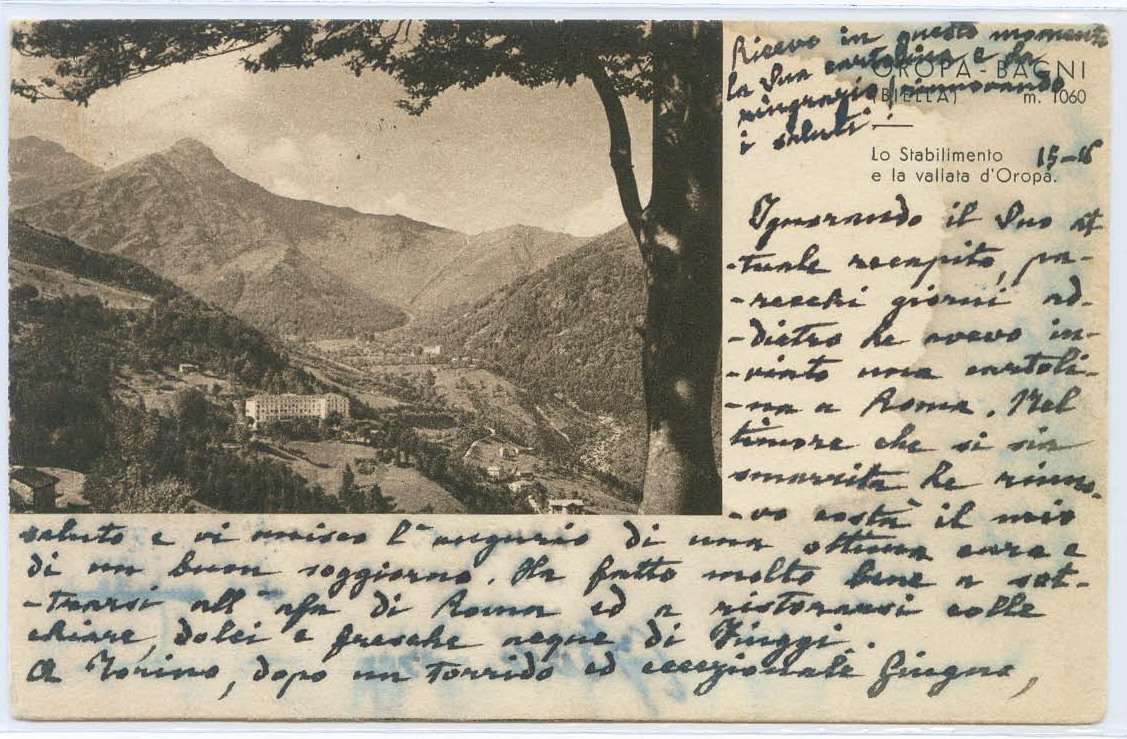 Ricevo in questo momento
la Sua cartolina e La
ringrazio rinnovando
i saluti.
OROPA - BAGNI
(BIELLA) m. 1060
Lo Stabilimento
e la vallata d'Oropa.
15-
Ignorando il Suo at
-tuale recapito, pa-
-recchi giorni ad-
-dietro Le avevo in-
-viato una cartoli-
-na a Roma. Nel
timore che si sia
smarrita Le rinno-
-vo costà il mio
saluto e vi unisco l'augurio di una ottima cura e
di un buon soggiorno. Ha fatto molto bene a sot-
-trarsi all'afa di Roma ed a ristorarsi colle
chiare, dolci e fresche acque di Fiuggi.
A Torino, dopo un torrido ed eccezionale Giugno,